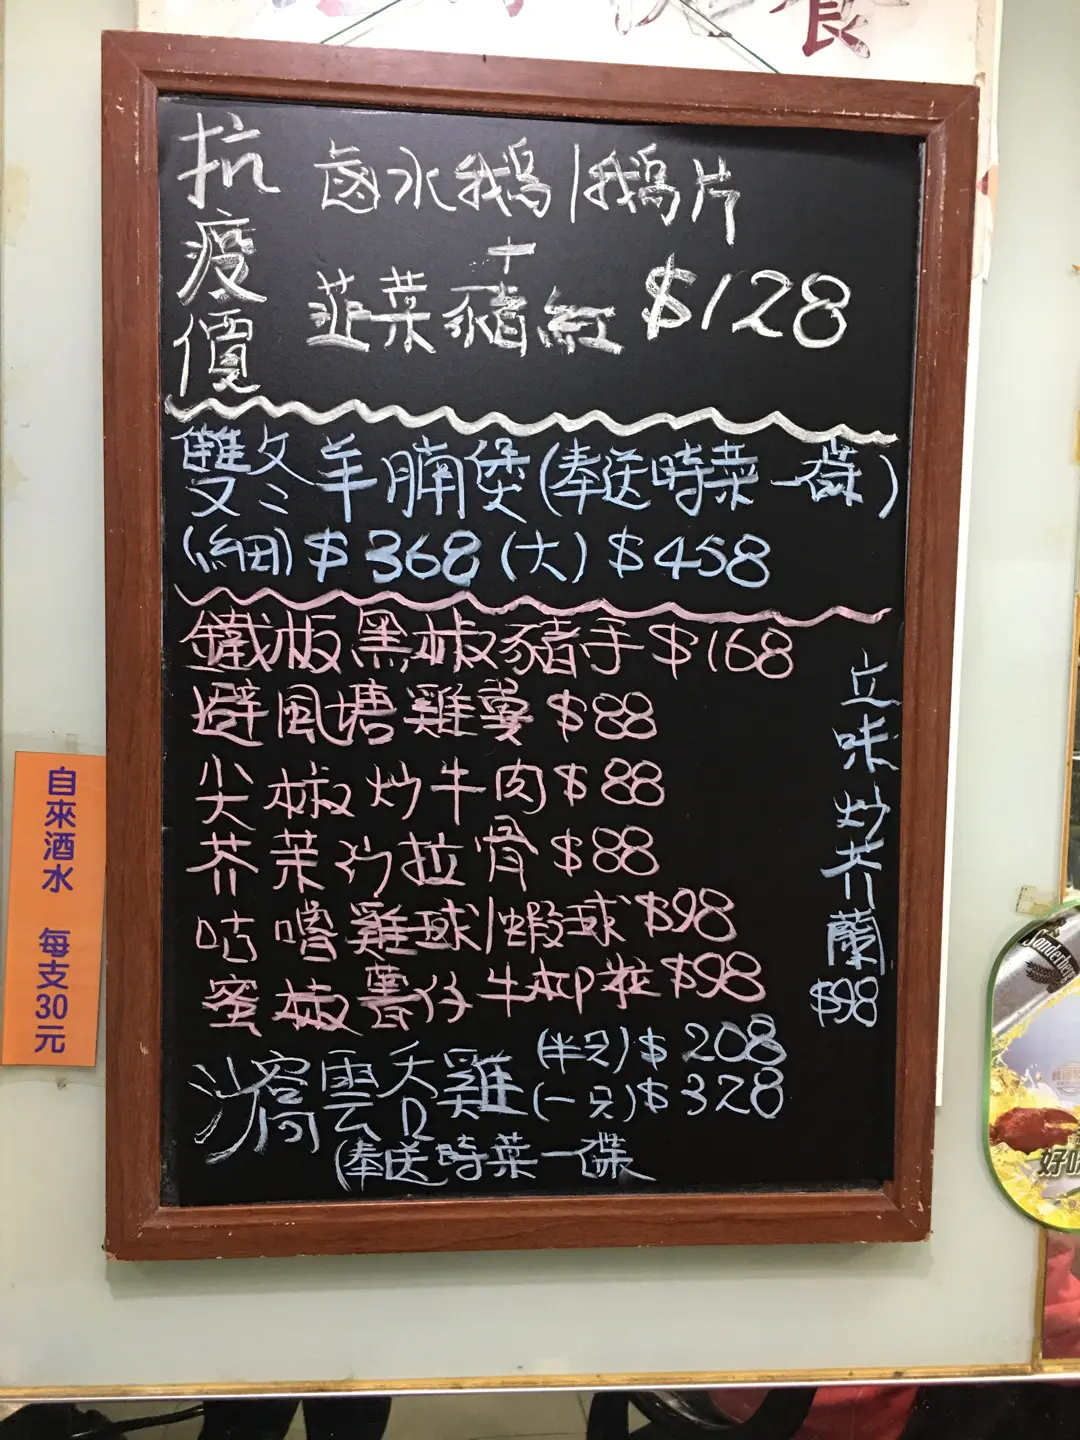 餐
抗疫價
鹵水鵝/鵝片
+
韮菜豬紅 $128
雙冬羊腩煲(奉送時菜一碟)
(細)$368(大)$458
鐵板黑椒豬手$168
避風塘雞翼$88
尖椒炒牛肉$88
芥茉沙拉骨$88
咕嚕雞球/蝦球$98
蜜椒薯仔牛柳粒$98
沙窩雲吞雞(半只)$208
(一只)$328
(奉送時菜一碟
立味炒芥蘭
$98
自來酒水 每支30元
Sonderberg